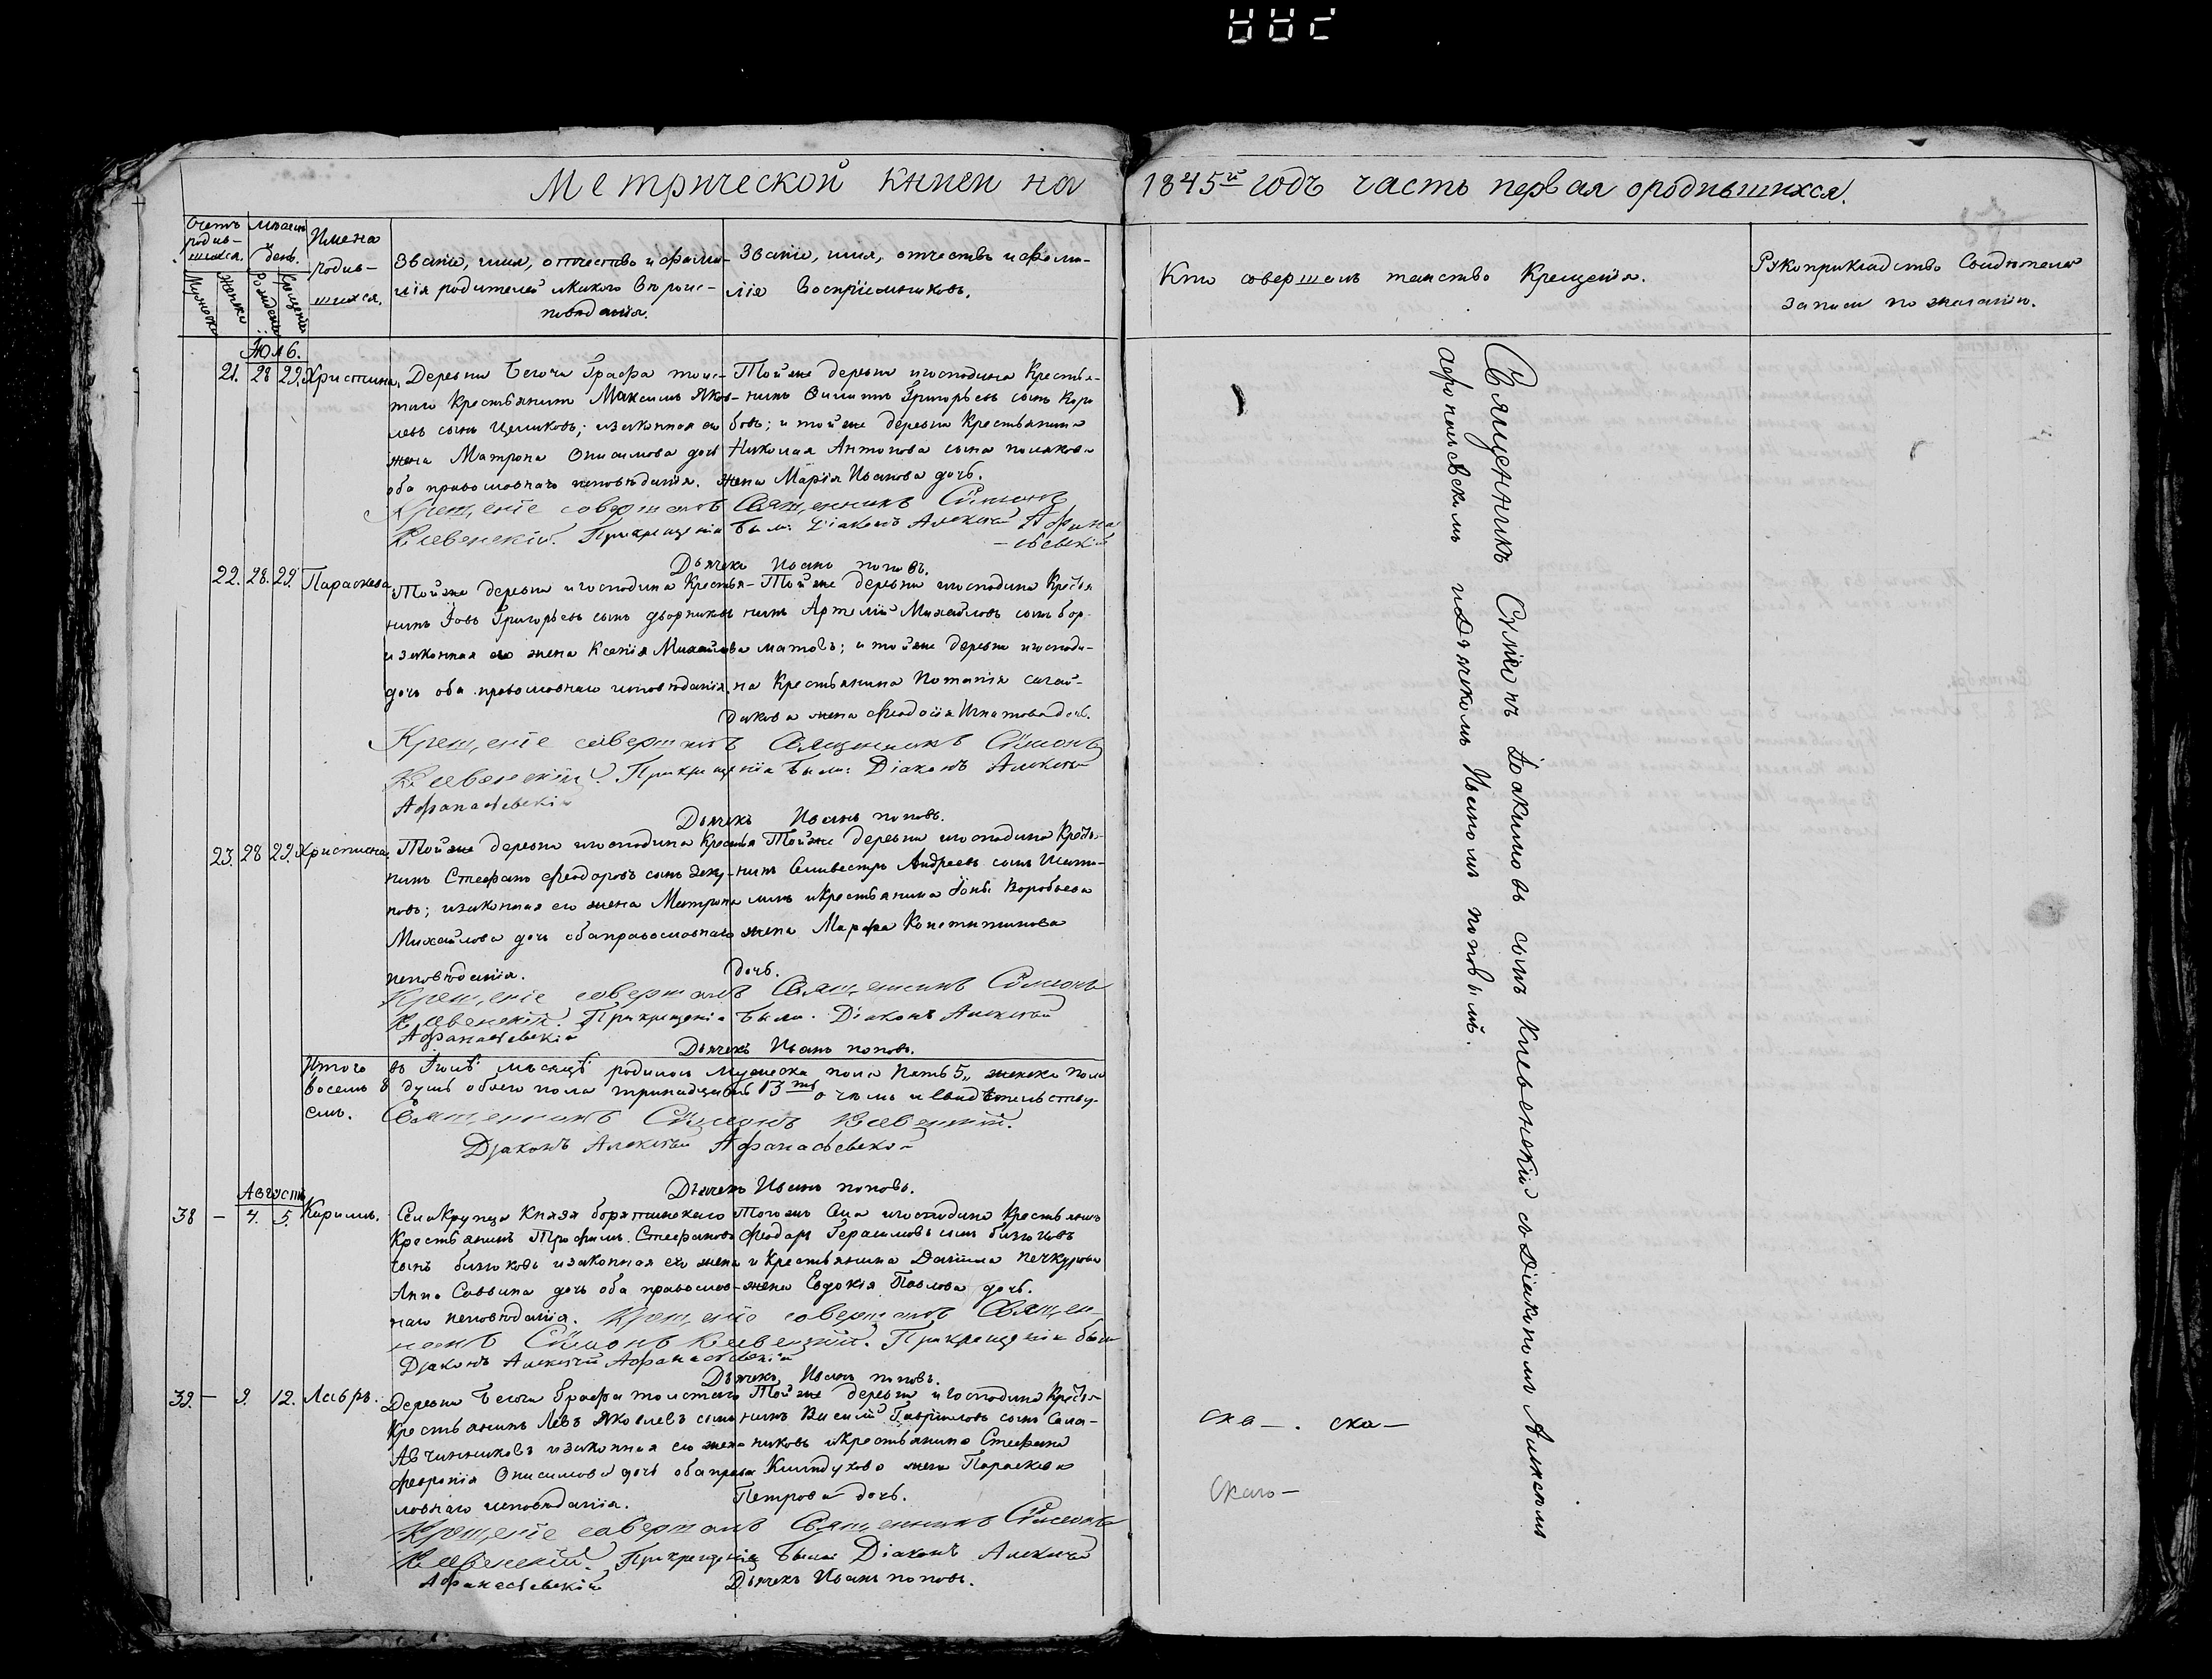 Метрической книги на 1845й годъ часть первая ородившихся.
Счетъ родив-шихся.
Мужеска
Женска
Мѣсяцъ й день.
Рожденія
Крещенія
Имена родив-шихся.
Званіе, имя, отчество и фами-
лія родителей икакого вѣроис-
повѣданія.
Званіе, имя, отчество и фами-
лія Воспріемниковъ.
Кто совершалъ таинство Крещенія.
Рукоприкладство Свидѣтелей
записи по желанію.
Июль.
21. 28 29. Христина.
Деревни Бегочи Графа толс-
таго Крестьянинъ Максимъ Яков-
левъ сынъ Цыликовъ; изаконная ею
жена Матрона Онисимова дочь
оба православнаго исповѣданія.
Тойже деревни игосподина Крестья-
нинъ Филиппъ Григорьевъ сынъ Коро
бовъ; и тойже деревни Крестьянина
Николая Антонова сына полякова
жена Марія Иванова дочь.
Крещеніе совершалъ Священникъ Сѵмеонъ
Клевенскій. Прикрещеніи были: Діаконъ Алексѣй Афана
-сьевскій
Дьячекъ Иванъ поповъ.
22. 28. 29. Параскева
Тойже деревни игосподина Крестья-
нинъ Іовъ Григорьевъ сынъ дворниковъ
изаконная его жена Ксенія Михайлова
дочь оба православнаго исповѣданія.
Тойже деревни игосподина Крестья
нинъ Артемій Михайловъ сынъ бор-
матовъ; и тойже деревни игосподи-
на Крестьянина Потапія сагай-
дакова жена Феодосія Игнатова дочь.
Крещеніе совершалъ Священникъ Сѵмеонъ
Клевенскій. Прикрещеніи были: Діаконъ Алексѣй
Афанасьевскій
Дьячекъ Иванъ поповъ.
23. 28 29. Христина.
Тойже деревни игосподина Крестья
нинъ Стефанъ Феодоровъ сынъ
новъ; изаконная его жена Матрона
Михайлова дочь обаправославнаго
исповѣданія.
Тойже деревни игосподина Крестья-
нинъ Селивестръ Андреевъ сынъ
икрестьянина Іоны Воробьева
жена Марфа Константинова
дочь.
Крещеніе совершалъ Священникъ Сѵмеонъ
Клевенскій. Прикрещеніи были: Діаконъ Алексѣй
Афанасьевскій
Дьячекъ Иванъ поповъ.
Итого въ Іюлѣ мѣсяцѣ родилось Мужеска пола Пять 5,, женска пола
восемь 8 душъ обоего пола тринадцать 13ть о чемъ и свидѣтельству-
емъ. Священникъ Сѵмеонъ Клевенскій.
Діаконъ Алексѣй Афанасьевской
Дьячекъ Иванъ поповъ.
Августъ
38 — 4. 5. Кириллъ.
Села Крупца Князя борятинскаго
Крестьянинъ Трофимъ Стефановъ
сынъ бизюковъ изаконная его жена
Анна Саввина дочь оба православ-
наго исповѣданія.
Тогожъ Села игосподина Крестьянинъ
Феодоръ Герасимовъ сынъ бизюковъ
и Крестьянина Даніила Печкурова
жена Евдокія Павлова дочь.
Крещеніе совершалъ Священ-
никъ Сѵмеонъ Клевенскій. Прикрещеніи были
Діаконъ Алексѣй Афанасьевскій
Дьячекъ Иванъ поповъ.
39. — 9. 12. Лавръ.
Деревни Бегочи Графа толстаго
Крестьянинъ Левъ Яковлевъ сынъ
Авчинниковъ изаконная его жена
Феvронія Онисимова дочь обаправо
славнаго исповѣданія.
Тойже деревни игосподина Крестья-
нинъ Василій Гавріиловъ сынъ Сала-
никовъ икрестьянина Стефана
Килидухова жена Параскева
Петрова дочь.
Крещеніе совершалъ Священникъ Сѵмеонъ
Клевенскій. Прикрещеніи были Діаконъ Алексѣй
Афанасьевскій
Дьячекъ Иванъ поповъ.
Священникъ Сѵмеонъ Іоакимовъ сынъ Клевенскій съДіакономъ Алексѣемъ
афонасьевскимъ иДьячекомъ Иваномъ поповымъ.
ска — . ска —
скаго —